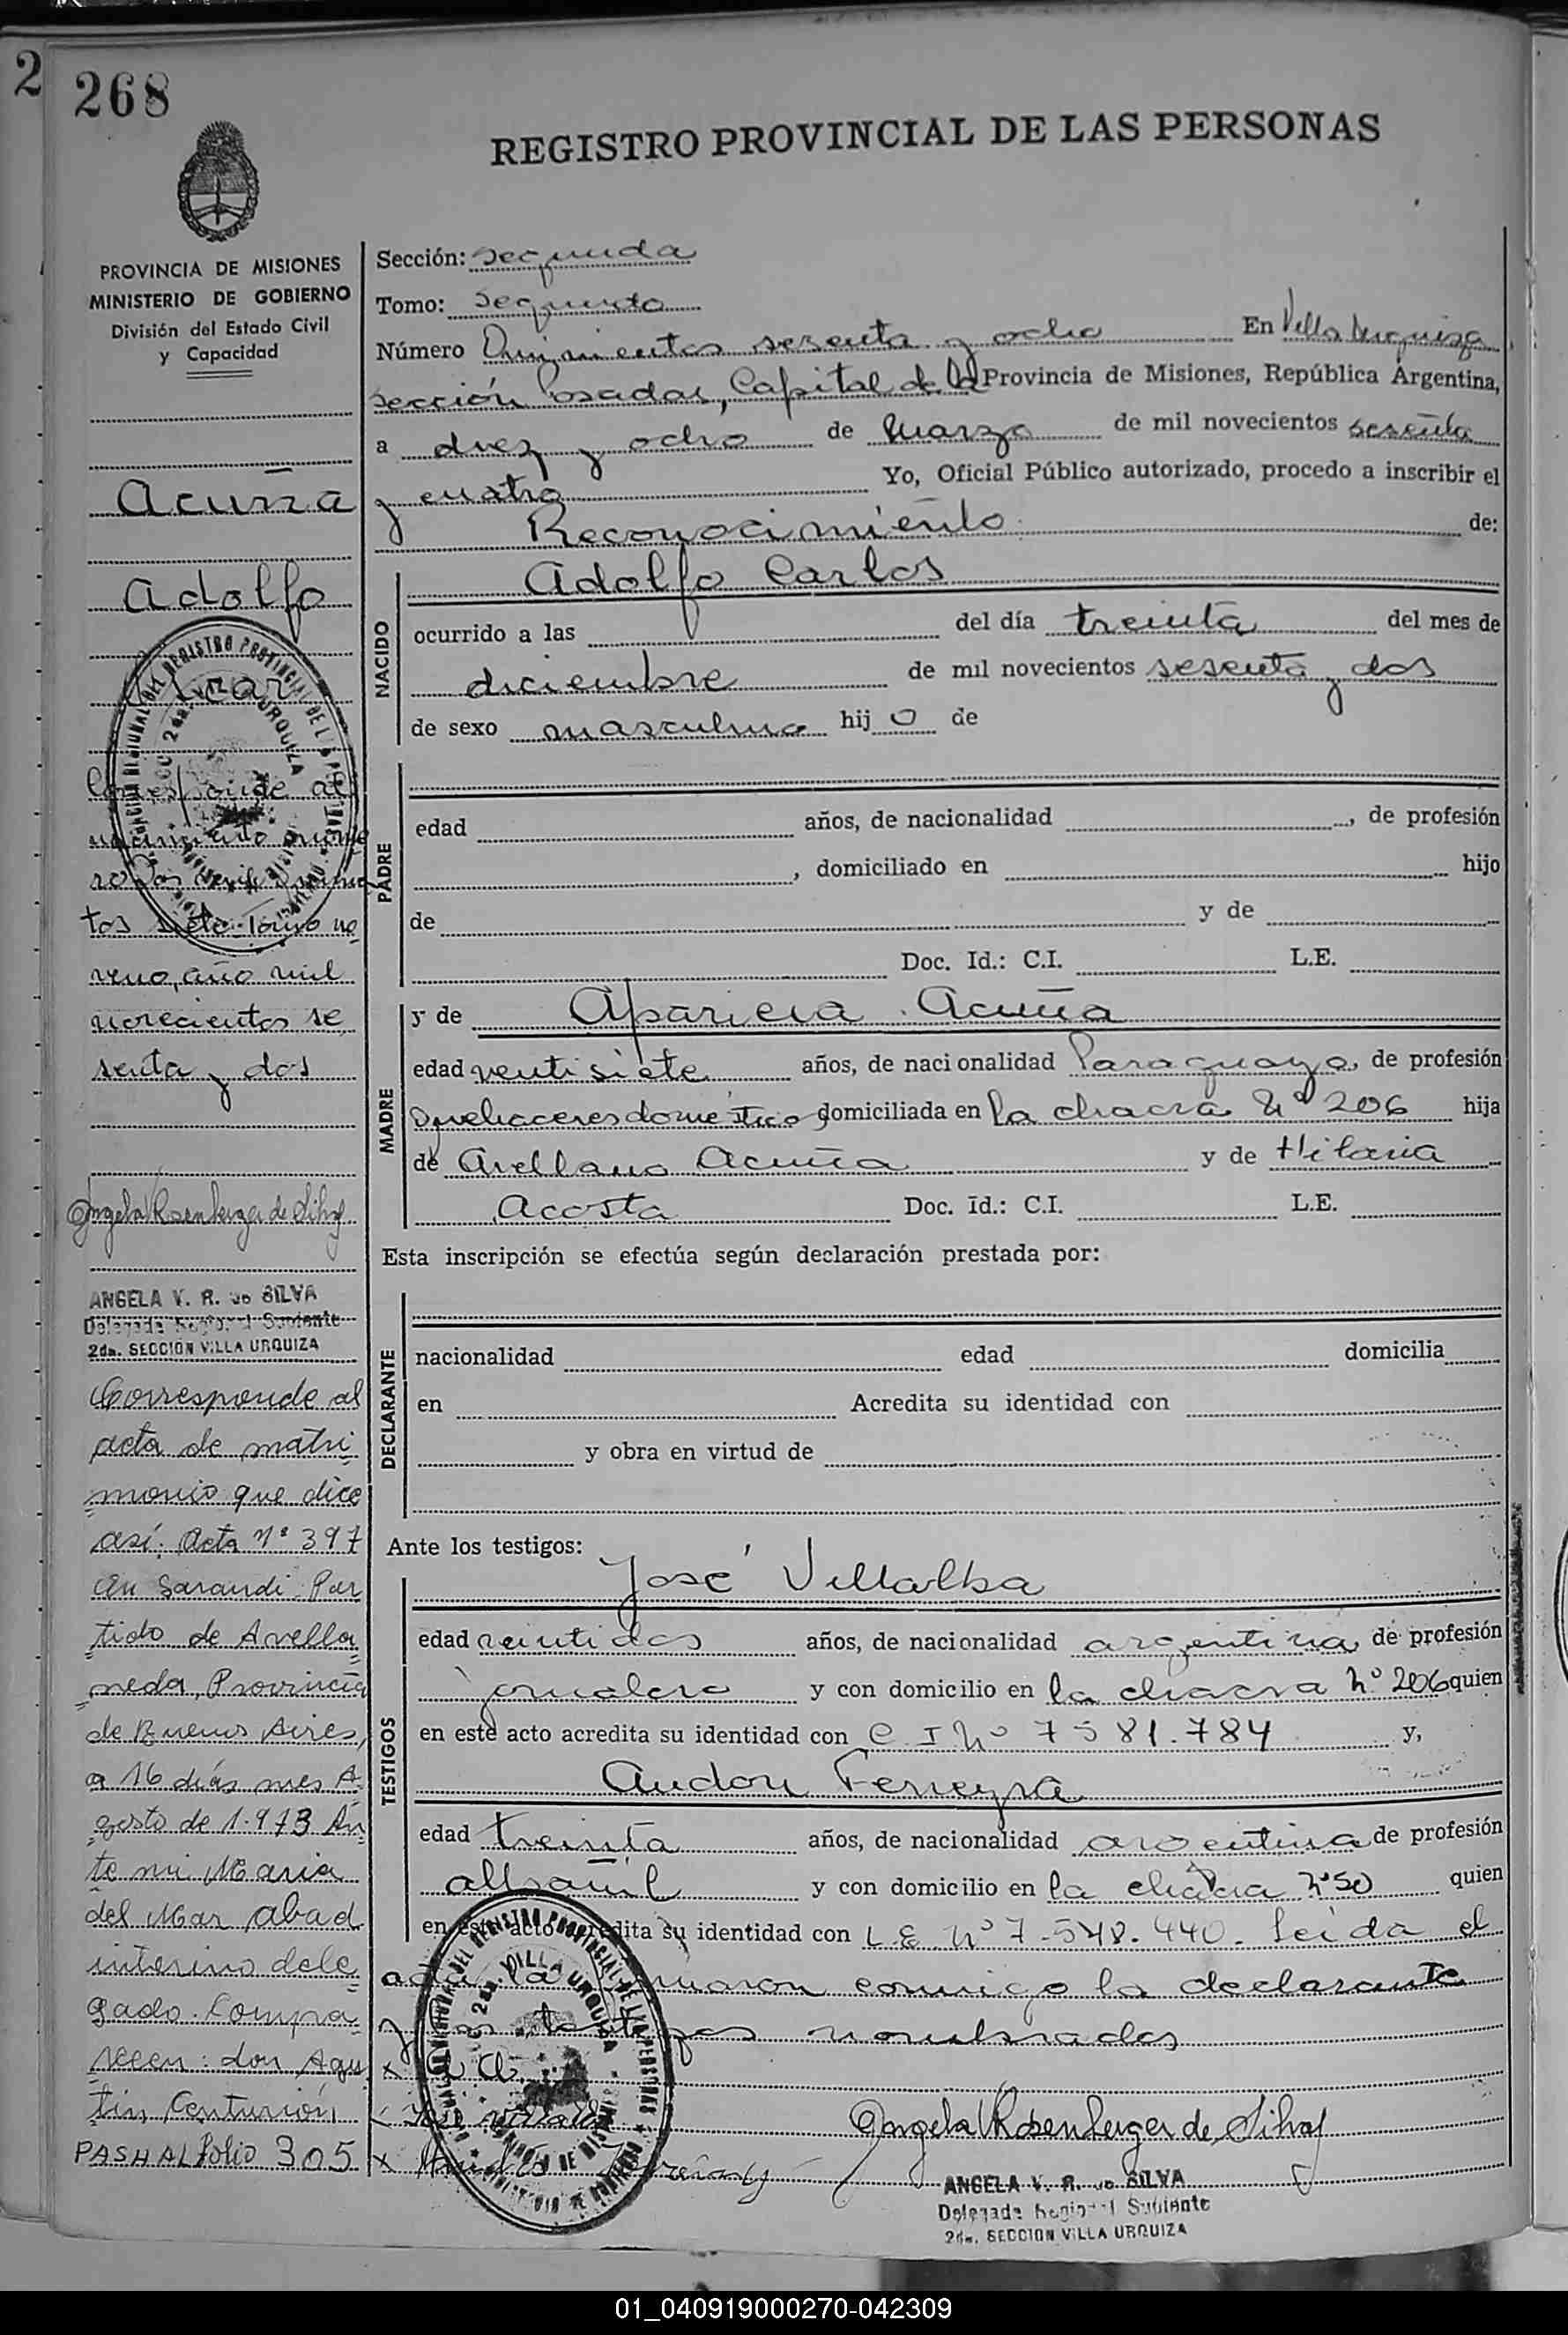 2
268
REGISTRO PROVINCIAL DE LAS PERSONAS
PROVINCIA DE MISIONES
MINISTERIO DE GOBIERNO
División del Estado Civil
y Capacidad
Acuña
Adolfo
Corresponde al
nacimiento núme
ro Dos
tos siete Tomo no
veno, año mil
novecientos se
senta y dos
Angela V Rosenberger de Silva
ANGELA V. R. de SILVA
Delegada Regional Suplente
2da. SECCION VILLA URQUIZA
Corresponde al
acta de matri
monio que dice
así: Acta Nº 397
En Sarandi Par
tido de Avella
neda, Provincia
de Buenos Aires,
a 16 días mes A
gosto de 1.973 An
te mi Maria
del Mar Abad
interino dele
gado. Compa
recen: don Agus
tin Centurión
PASHAL folio 305
Sección: segunda
Tomo: segundo
Número Quinientos sesenta y ocho En Villa Urquiza
sección Posadas, Capital de la Provincia de Misiones, República Argentina,
a diez y ocho de Marzo de mil novecientos sesenta
y cuatro Yo, Oficial Público autorizado, procedo a inscribir el
Reconocimiento de:
NACIDO
Adolfo Carlos
ocurrido a las del día treinta del mes de
diciembre de mil novecientos sesenta y dos
de sexo masculino hij o de
PADRE
edad años, de nacionalidad , de profesión
, domiciliado en hijo
de y de
Doc. Id.: C.I. L.E.
MADRE
y de Aparicia Acuña
edad ventisiete años, de nacionalidad Paraguaya, de profesión
quehaceres domésticos domiciliada en la chacra Nº 206 hija
de Avellano Acuña y de Hilaria
Acosta Doc. Id.: C.I. L.E.
Esta inscripción se efectúa según declaración prestada por:
DECLARANTE
nacionalidad edad domicilia
en Acredita su identidad con
y obra en virtud de
Ante los testigos:
TESTIGOS
José Villalba
edad veintidos años, de nacionalidad argentina de profesión
jornalero y con domicilio en la chacra Nº 206 quien
en este acto acredita su identidad con C I Nº 7581.784 y,
Audon Ferreyra
edad treinta años, de nacionalidad argentina de profesión
albañil y con domicilio en la chacra Nº 50 quien
en este acto acredita su identidad con L.E. Nº 7.548.440. Leída el
acta la firmaron conmigo la declarante
y los testigos nombrados
Angela V Rosenberger de Silva
ANGELA V. R. de SILVA
Delegada Regional Suplente
2da. SECCION VILLA URQUIZA
01_040919000270-042309